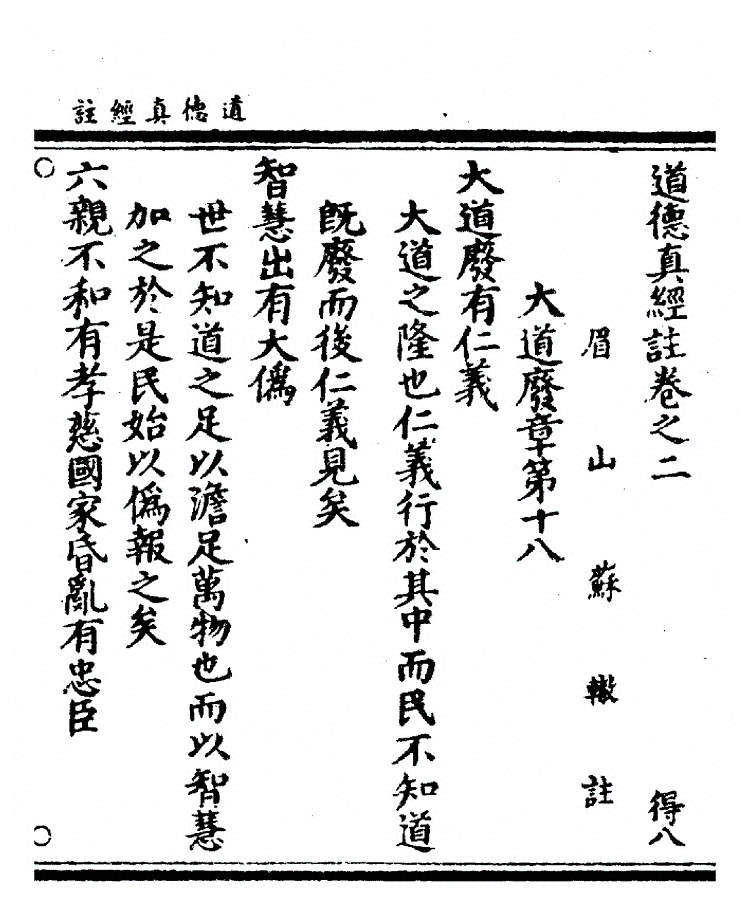 道德真經註
道德真經註卷之二 得八
眉山蘇轍註
大道廢章第十八
大道廢有仁義
大道之隆也仁義行於其中而民不知道
既廢而後仁義見矣
智慧出有大偽
世不知道之足以澹足萬物也而以智慧
加之於是民始以偽報之矣
六親不和有孝慈國家昏亂有忠臣